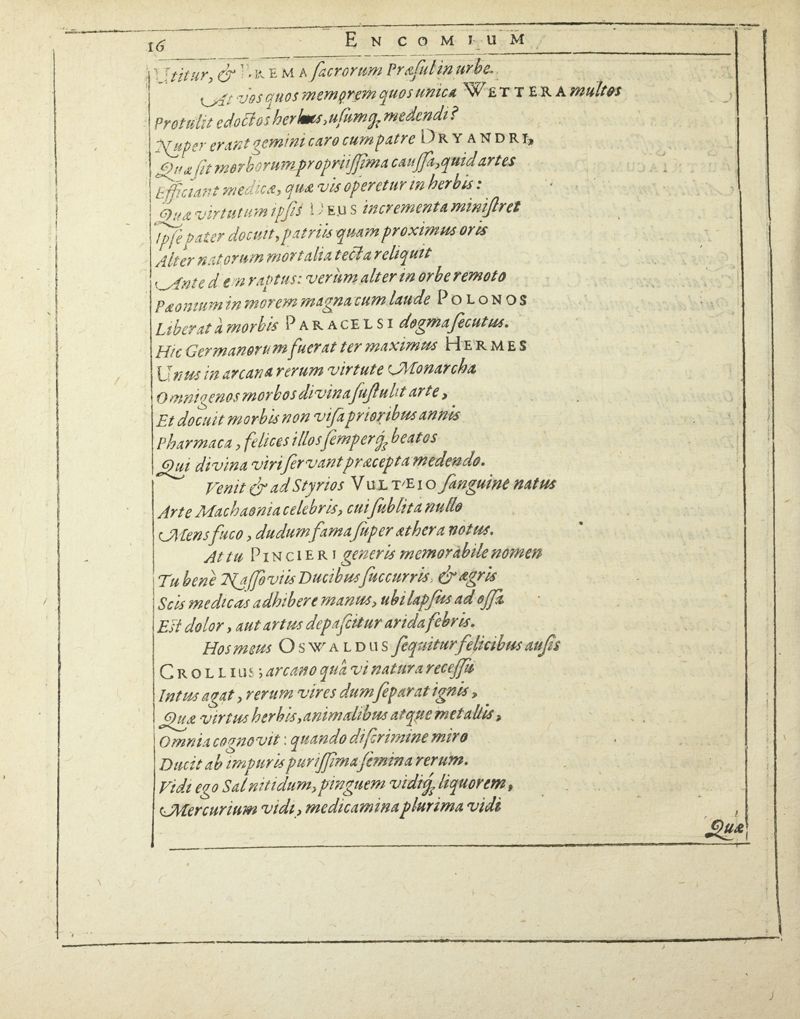 16
ENCOMIUM
Utitur, & BREMA sacrorum Præsul in urbe.
At vos quos memorem quos unica WETTERA multos
Protulit edoctos herbas, usumq; medendi?
Nuper erant gemini caro cum patre DRYANDRI,
Quæ sit morborum propriissima caussa, quid artes
Efficiant medicæ, quæ vis operetur in herbis:
Quæ virtutum ipsis DEUS incrementa ministret
Ipse pater docuit, patriis quam proximus oris
Alter natorum mortalia tecta reliquit
Ante diem raptus: verùm alter in orbe remoto
Pæonium in morem magna cum laude POLONOS
Liberat à morbis PARACELSI dogma secutus.
Hic Germanorum fuerat ter maximus HERMES
Unus in arcana rerum virtute Monarcha
Omnigenos morbos divina sustulit arte,
Et docuit morbis non visa prioribus annis
Pharmaca, felices illos semperq; beatos
Qui divina viri servant præcepta medendo.
Venit & ad Styrios VULTEIO sanguine natus
Arte Machaonia celebris, cui sublita nullo
Mens fuco, dudum fama super æthera notus.
At tu PINCIERI generis memorabile nomen
Tu benè Nassoviis Ducibus succurris, & ægris
Scis medicas adhibere manus, ubi lapsus ad ossa
Est dolor, aut artus depascitur arida febris.
Hos meus OSWALDUS sequitur felicibus ausis
CROLLIUS; arcano quâ vi natura recessu
Intus agat, rerum vires dum separat ignis,
Quæ virtus herbis, animalibus atque metallis,
Omnia cognovit: quando discrimine miro
Ducit ab impuris purissima semina rerum.
Vidi ego Sal nitidum, pinguem vidiq; liquorem,
Mercurium vidi, medicamina plurima vidi
Quæ